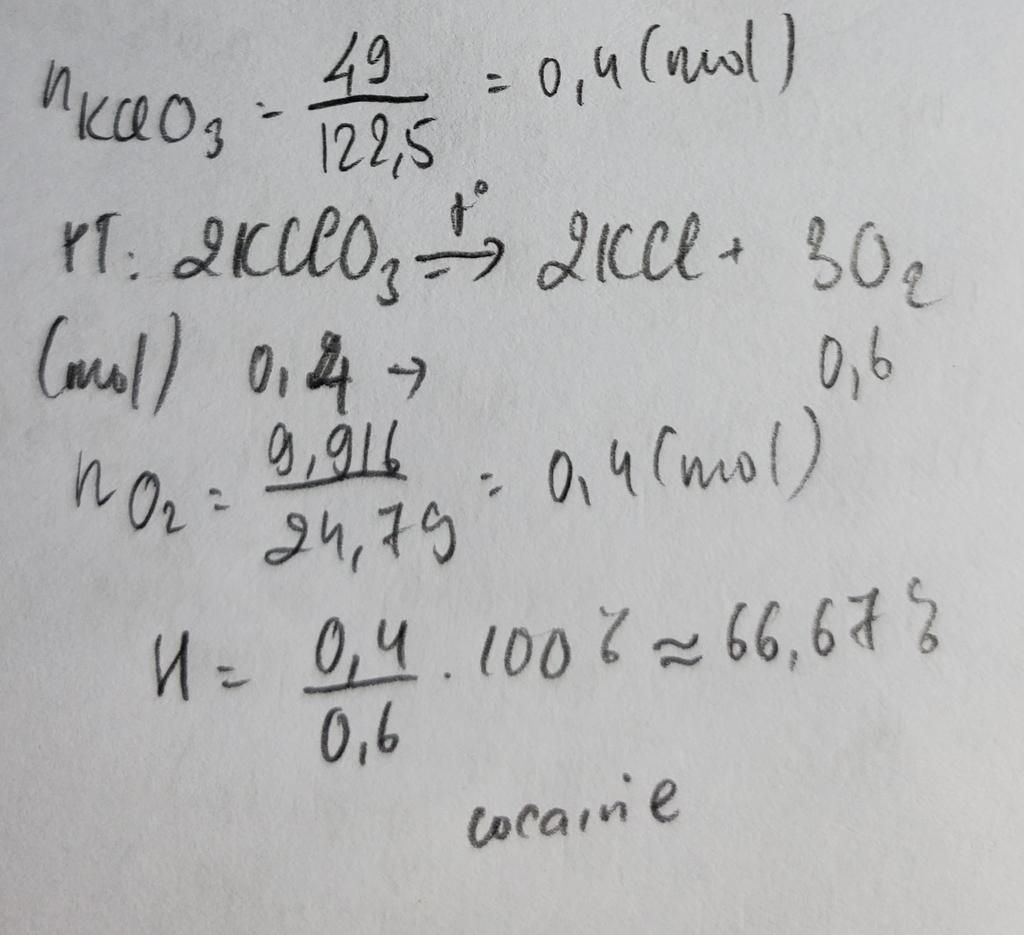 nKClO3 = 49/122,5 = 0,4 (mol)
PT: 2KClO3 t°→ 2KCl + 3O2
(mol) 0,4 → 0,6
nO2 = 9,916/24,79 = 0,4 (mol)
H = 0,4/0,6 . 100% ≈ 66,67%
cocaine